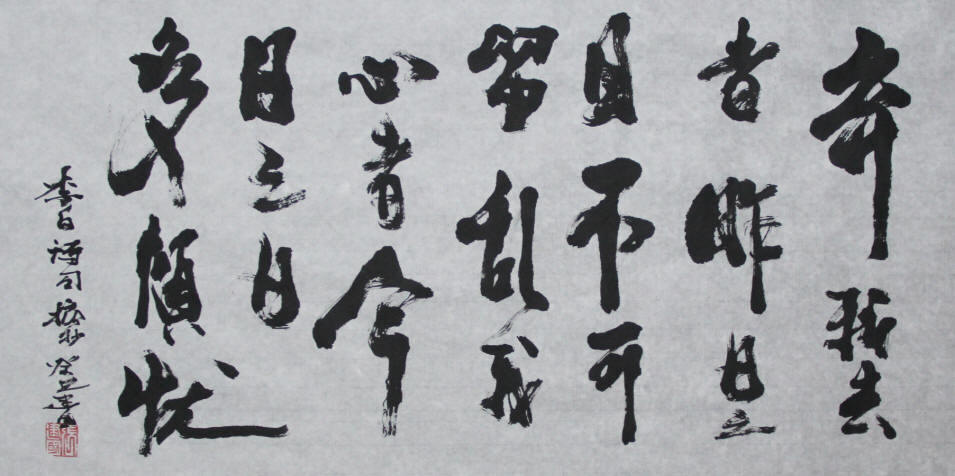 弃我去
者昨日之
日不可
留乱我
心者今
日之日
多煩忧
李白詩句